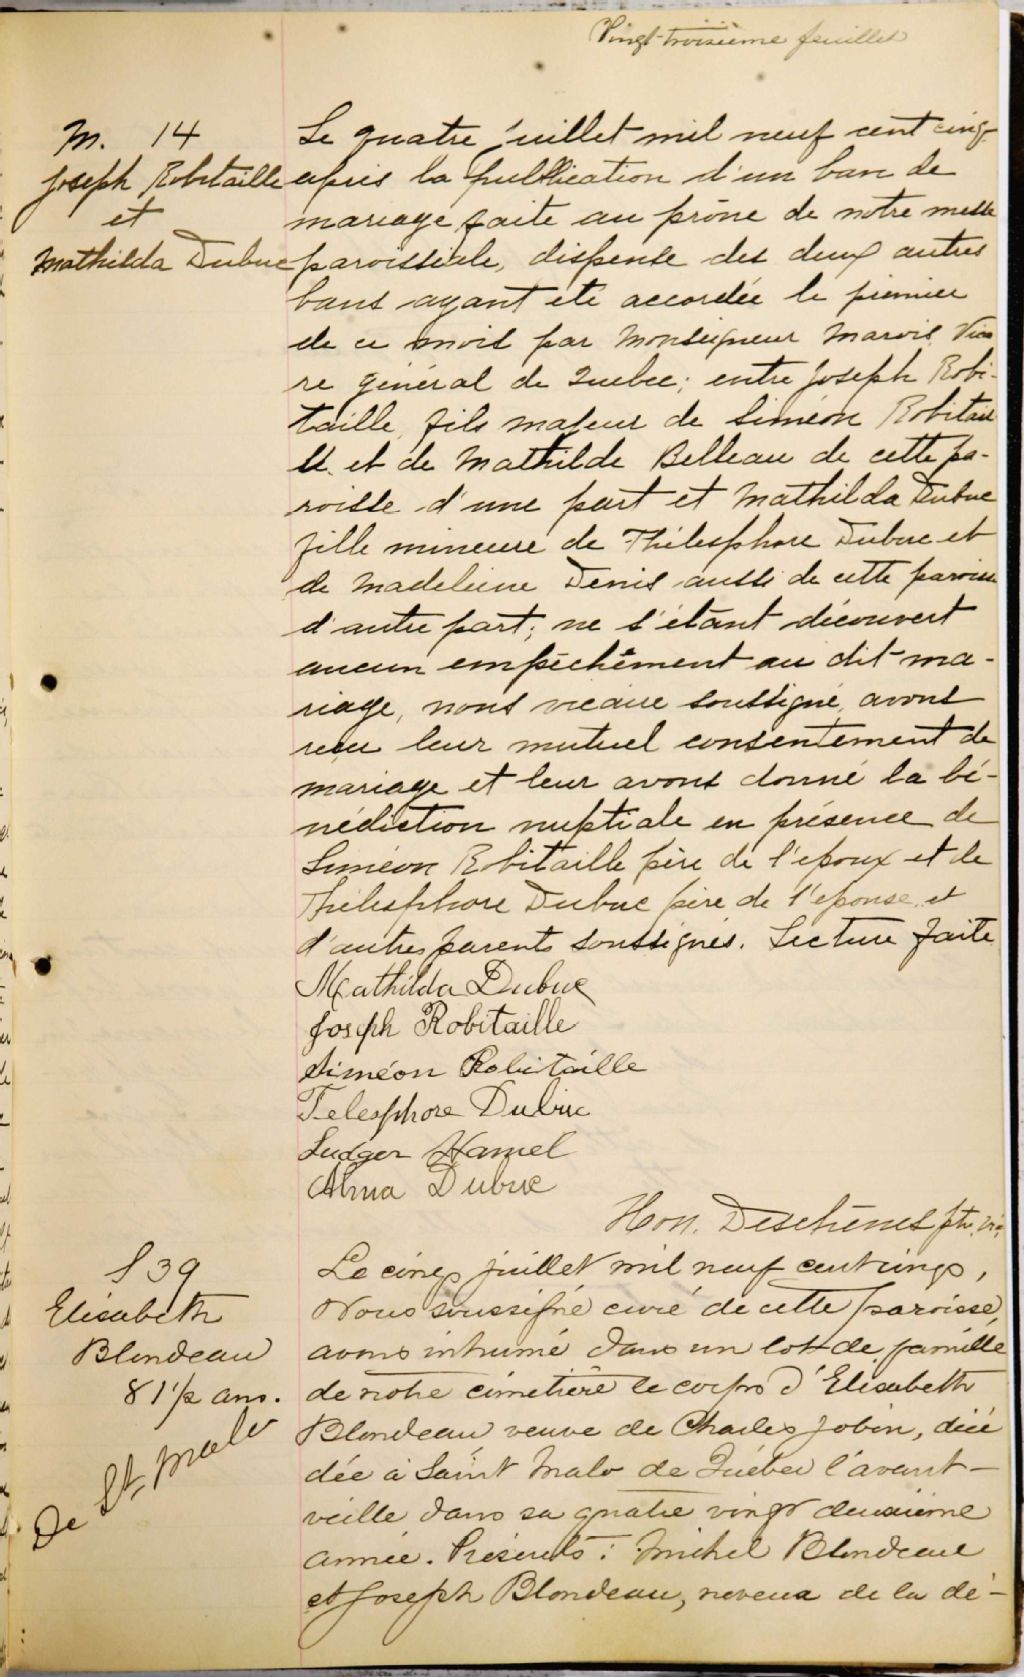 Vingt-troisième feuillet
M. 14
Joseph Robitaille
et
Mathilda Dubuc
Le quatre juillet mil neuf cent cinq
après la publication d'un ban de
mariage faite au prône de notre messe
paroissiale, dispense des deux autres
bans ayant été accordée le premier
de ce mois par Monseigneur Marois Vicai
re général de Québec; entre Joseph Robi-
taille, fils majeur de Siméon Robitail
le et de Mathilde Belleau de cette pa-
roisse d'une part et Mathilda Dubuc
fille mineure de Thélesphore Dubuc et
de Madeleine Denis aussi de cette paroisse
d'autre part; ne s'étant découvert
aucun empêchement au dit ma-
riage, nous vicaire soussigné, avons
reçu leur mutuel consentement de
mariage et leur avons donné la bé-
nédiction nuptiale en présence de
Siméon Robitaille père de l'époux et de
Thélesphore Dubuc père de l'epouse et
d'autres parents soussignés. Lecture faite
Mathilda Dubuc
Joseph Robitaille
Siméon Robitaille
Telesphore Dubuc
Ludger Hamel
Alma Dubuc
Hon. Deschênes ptr. vic.
S 39
Elisabeth
Blondeau
81 1/2 ans.
De St Malo
Le cinq juillet mil neuf cent cinq,
Nous soussigné curé de cette paroisse,
avons inhumé dans un lot de famille
de notre cimetière le corps d'Elisabeth
Blondeau veuve de Charles Jobin, décé
dée à Saint Malo de Québec l'avant-
veille dans sa quatre vingt deuxième
année. Présents: Michel Blondeau
et Joseph Blondeau, neveux de la dé-